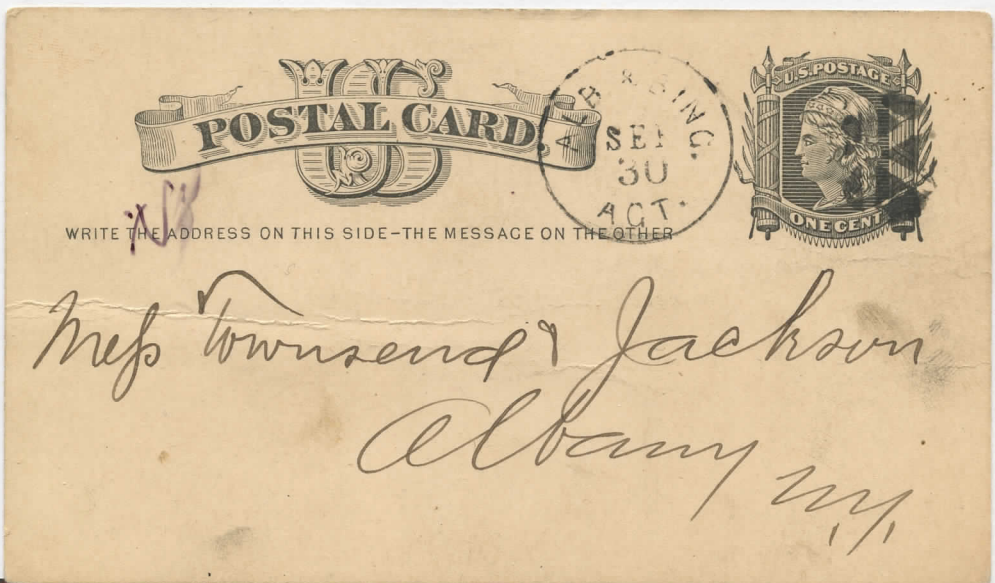 US
POSTAL CARD.
ALB & BING.
SEP
30
AGT.
U.S. POSTAGE
ONE CENT
WRITE THE ADDRESS ON THIS SIDE-THE MESSAGE ON THE OTHER
Mess Townsend & Jackson
Albany
N.Y.